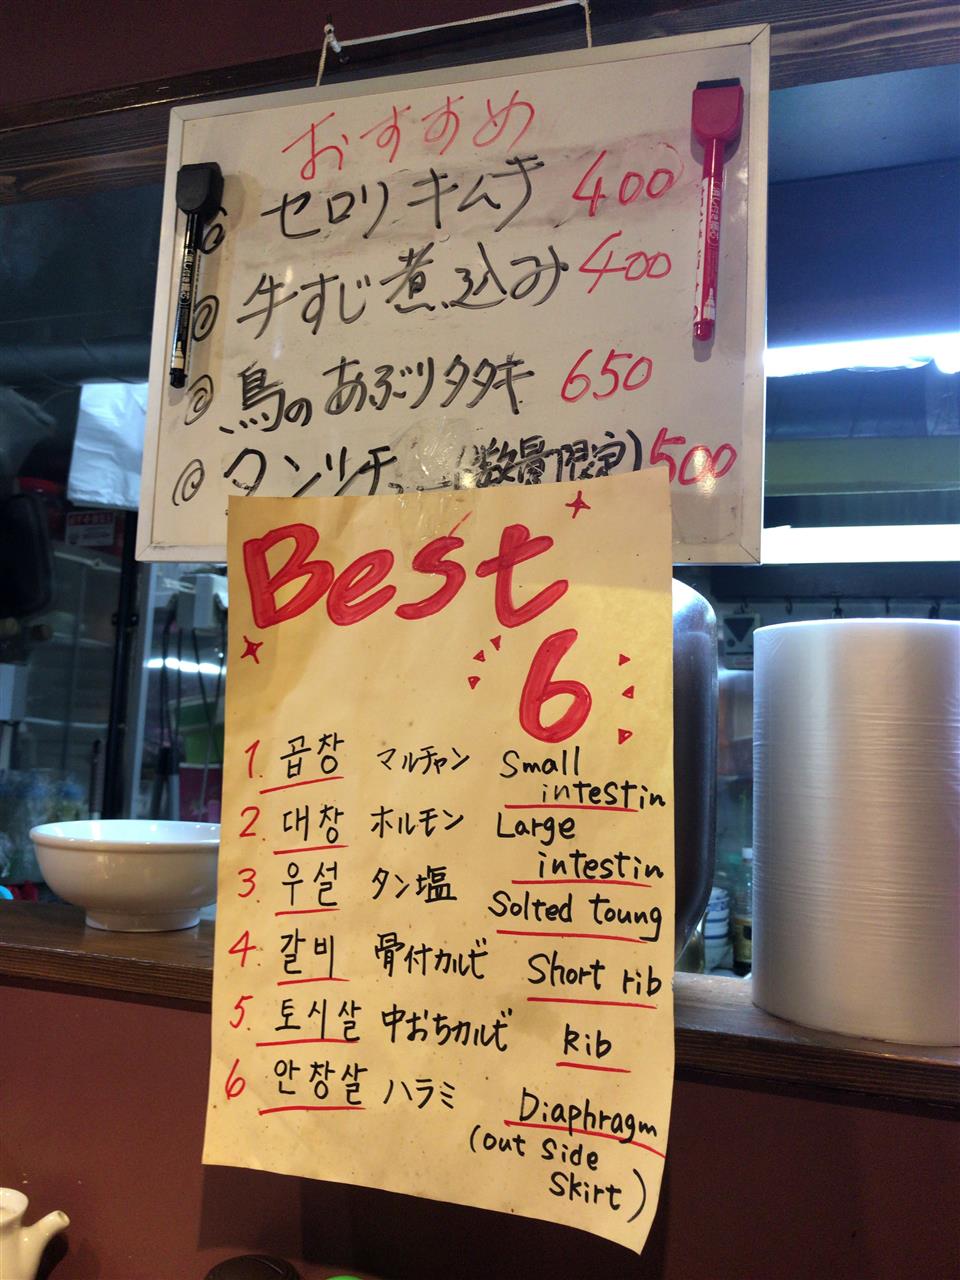 おすすめ
セロリキムチ 400
◎ 牛すじ煮込み 400
◎ 鳥のあぶりタタキ 650
◎ タンシチュー(数量限定) 500
Best
6
1. 곱창 マルチャン Small intestin
2. 대창 ホルモン Large intestin
3. 우설 タン塩 Solted toung
4. 갈비 骨付カルビ Short rib
5. 토시살 中おちカルビ Rib
6 안창살 ハラミ Diaphragm
(out side
Skirt)